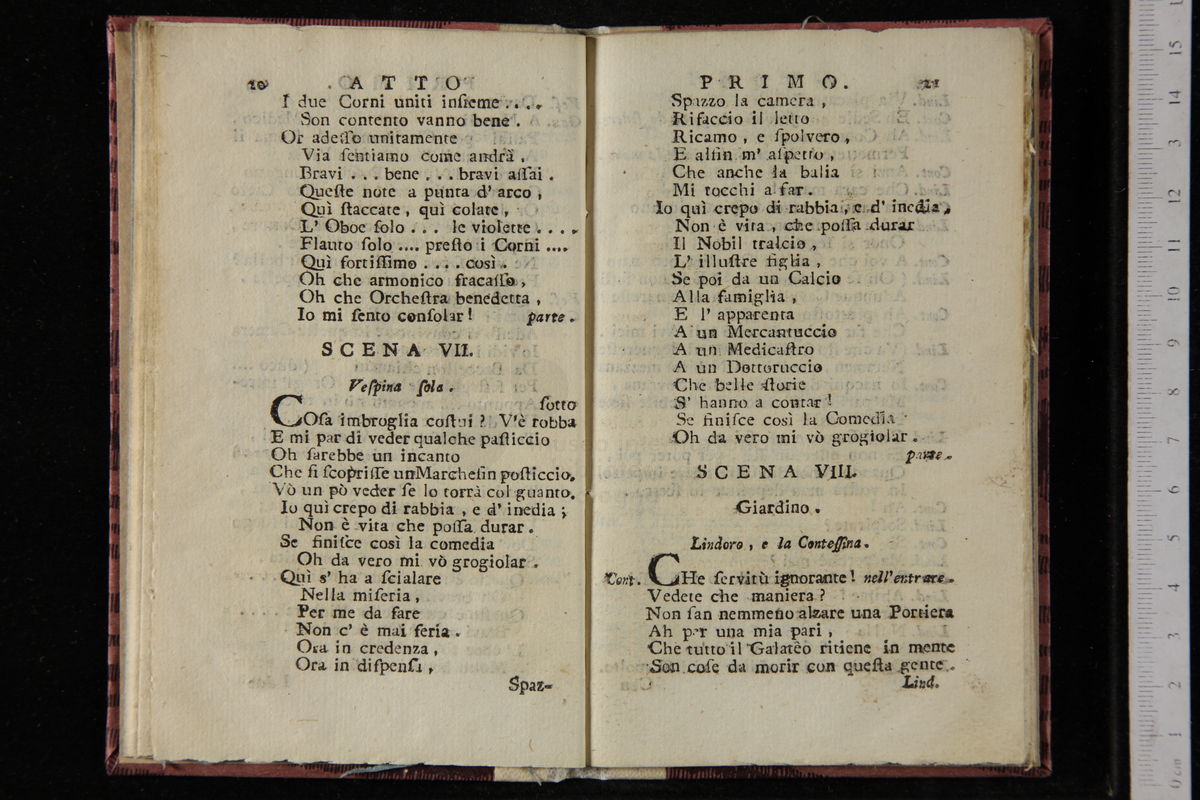 20 ATTO
I due Corni uniti inſieme ....
Son contento vanno bene .
Or adeſſo unitamente
Via ſentiamo come andrà ,
Bravi . . . bene . . . bravi aſſai .
Queſte note a punta d' arco ,
Quì ſtaccate , quì colate ,
L' Oboe ſolo . . . le violette . . . .
Flauto ſolo .... preſto i Corni ....
Quì fortiſſimo . . . . così .
Oh che armonico fracaſſo ,
Oh che Orcheſtra benedetta ,
Io mi ſento conſolar ! parte .
SCENA VII.
Veſpina ſola .
ſotto
COſa imbroglia coſtui ? V'è robba
E mi par di veder qualche paſticcio
Oh ſarebbe un incanto
Che ſi ſcopriſſe un Marcheſin poſticcio.
Vò un pò veder ſe lo torrà col guanto.
Io quì crepo di rabbia , e d' inedia ;
Non è vita che poſſa durar .
Se finiſce così la comedia
Oh da vero mi vò grogiolar .
Quì s' ha a ſcialare
Nella miſeria ,
Per me da fare
Non c' è mai feria .
Ora in credenza ,
Ora in diſpenſa ,
Spaz-
PRIMO. 21
Spazzo la camera ,
Rifaccio il letto
Ricamo , e ſpolvero ,
E alfin m' aſpetto ,
Che anche la balia
Mi tocchi a far .
Io quì crepo di rabbia , e d' inedia ,
Non è vita , che poſſa durar
Il Nobil tralcio ,
L' illuſtre figlia ,
Se poi da un Calcio
Alla famiglia ,
E l' apparenta
A un Mercantuccio
A un Medicaſtro
A un Dottoruccio
Che belle ſtorie
S' hanno a contar !
Se finiſce così la Comedia
Oh da vero mi vò grogiolar .
parte .
SCENA VIII.
Giardino .
Lindoro , e la Conteſſina .
Cont. CHe ſervitù ignorante ! nell'entrare .
Vedete che maniera ?
Non ſan nemmeno alzare una Portiera
Ah per una mia pari ,
Che tutto il Galatèo ritiene in mente
Son coſe da morir con queſta gente .
Lind.
15
14
13
12
11
10
9
8
7
6
5
4
3
2
1
0 cm